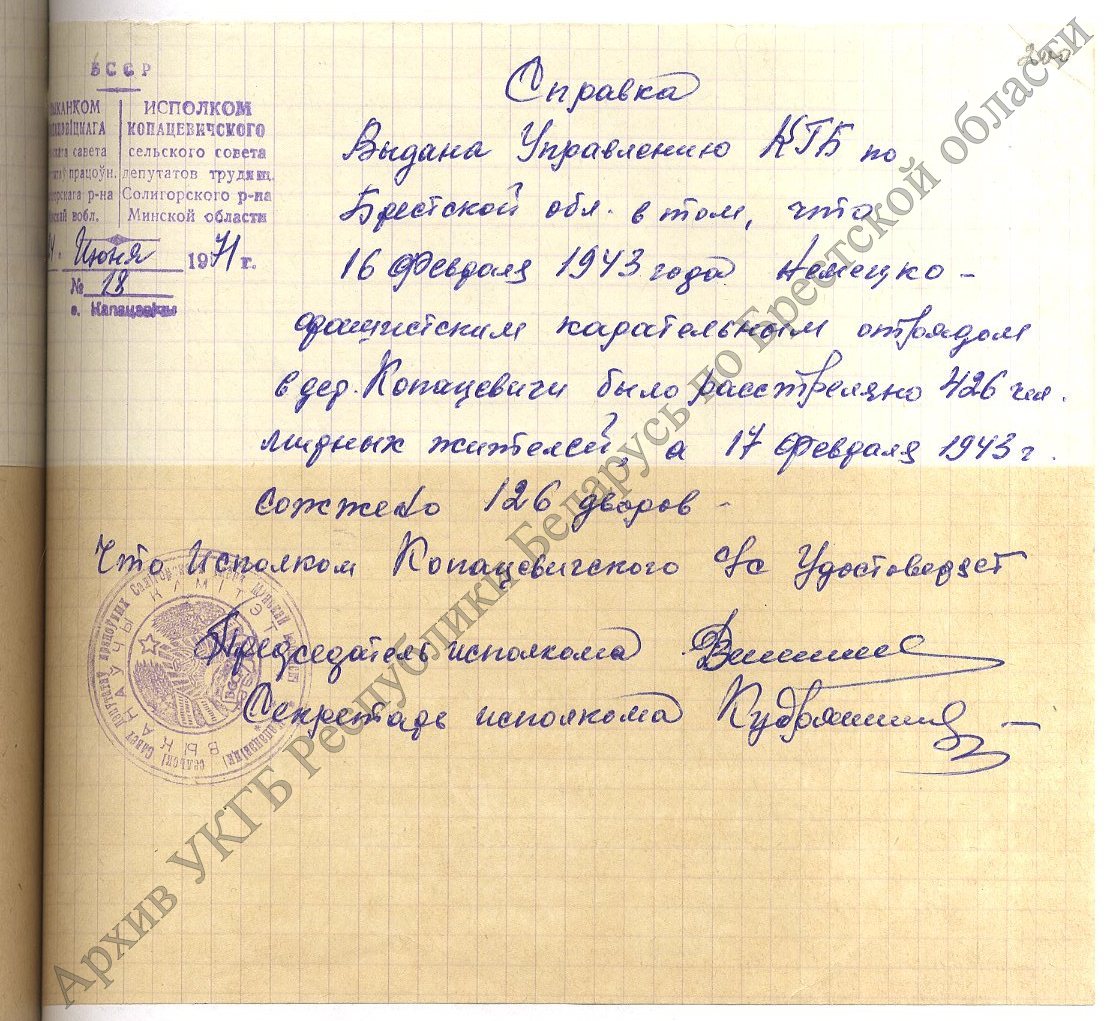 БССР
ИСПОЛКОМ
КОПАЦЕВИЧСКОГО
сельского совета
депутатов трудящ.
Солигорского р-на
Минской области
савета
працоўн.
р-на
вобл.
Июня 1971 г.
№ 18
Справка
Выдана Управлению КГБ по
Брестской обл. в том, что
16 февраля 1943 года немецко-
фашистским карательным отрядом
в дер. Копацевичи было расстреляно 426 чел.
мирных жителей, а 17 февраля 1943 г.
сожжено 126 дворов -
Что Исполком Копацевичского с/с Удостоверяет
Председатель исполкома
Секретарь исполкома
ВЫКАНАЎЧЫ КАМІТЭТ
БССР
Архив УКГБ Республики Беларусь по Брестской области